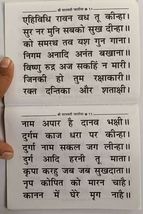 एहिविधि रावन वध तू कीन्हा।
सुर नर मुनि सबको सुख दीन्हा॥
को समरथ तव यश गुन गाना।
निगम अनादि अनंत बखाना॥
विष्णु रुद्र अज सकहिं न मारी।
जिनकी हो तुम रक्षाकारी॥
रक्त दन्तिका और शताक्षी।
नाम अपार है दानव भक्षी॥
दुर्गम काज धरा पर कीन्हा।
दुर्गा नाम सकल जग लीन्हा॥
दुर्ग आदि हरनी तू माता।
कृपा करहु जब जब सुखदाता॥
नृप कोपित को मारन चाहै।
कानन में घेरे मृग नाहै॥